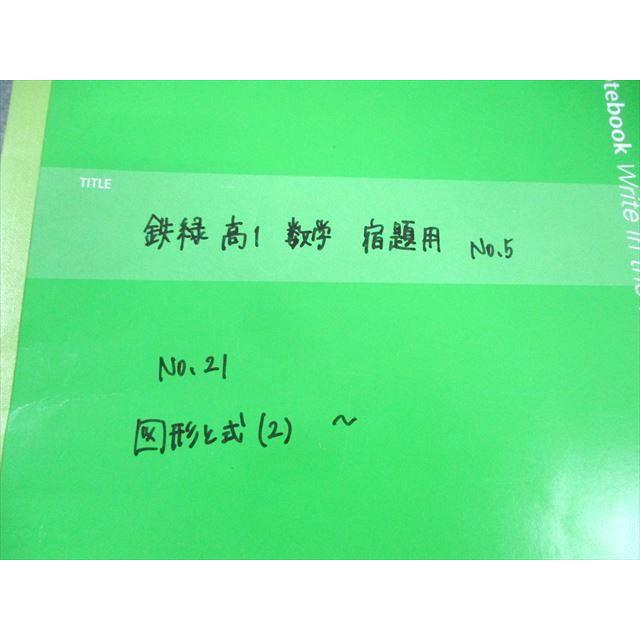 TITLE
鉄緑 高1 数学 宿題用 No.5
No.21
図形と式(2) ~
otebook Write in the